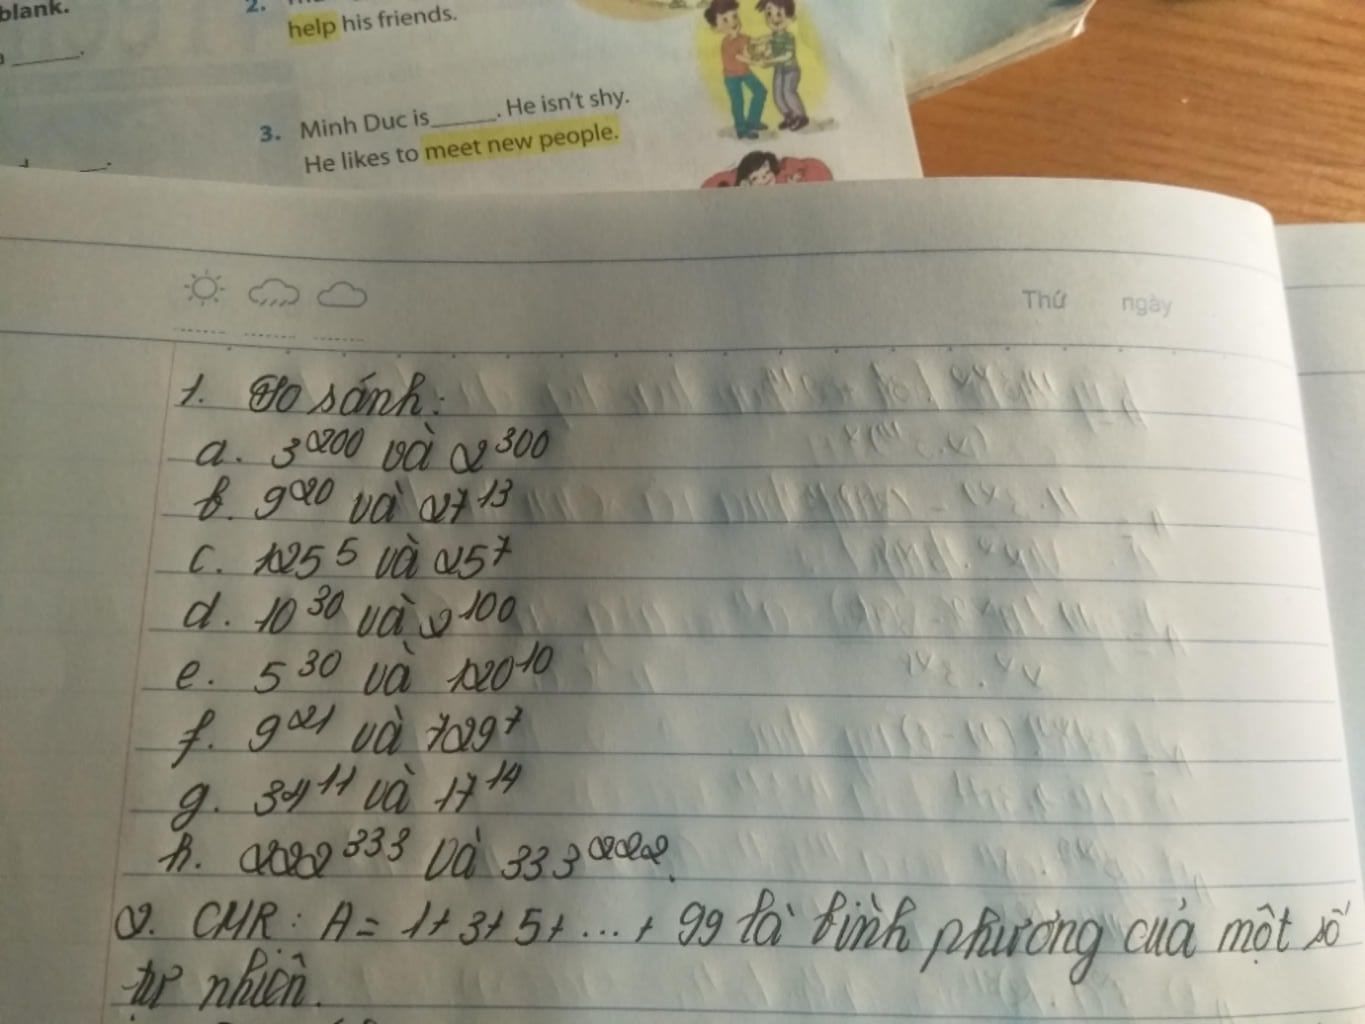 blank.
2.
help his friends.
3. Minh Duc is_____. He isn't shy.
He likes to meet new people.
Thứ ngày
1. So sánh:
a. 3²⁰⁰ và 2³⁰⁰
b. 9²⁰ và 27¹³
c. 125⁵ và 25⁷
d. 10³⁰ và 2¹⁰⁰
e. 5³⁰ và 120¹⁰
f. 9²¹ và 729⁷
g. 31¹¹ và 17¹⁴
h. 222³³³ và 333²²².
2. CMR: A = 1+3+5+...+99 là bình phương của một số
tự nhiên.